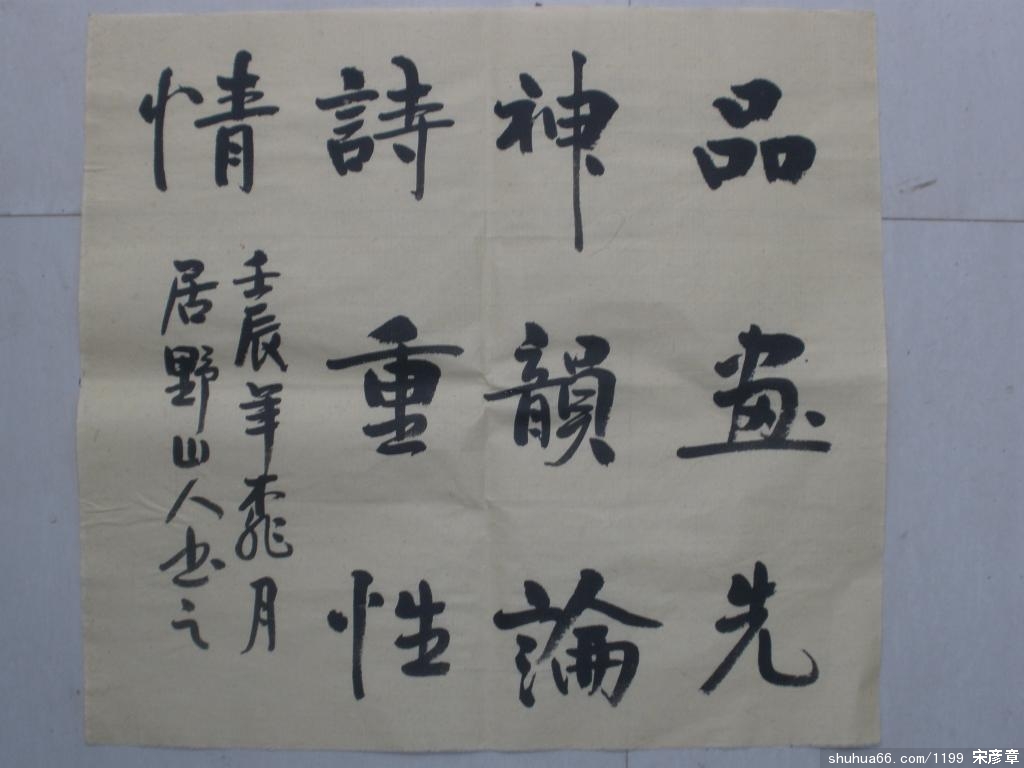 品畫先
神韻論
詩重性
情
壬辰年桃月
居野山人书之
shuhua66.com/1199 宋彦章